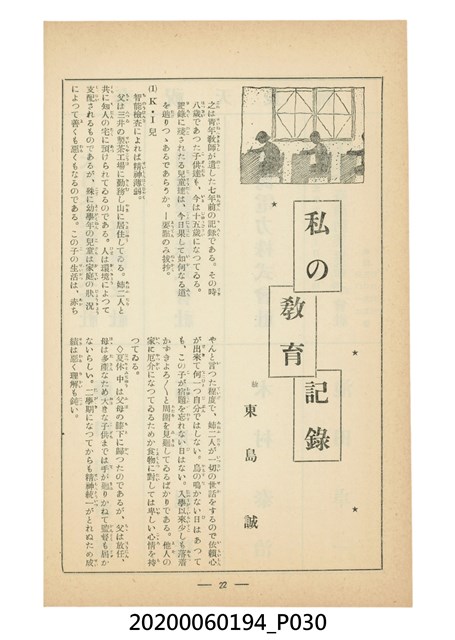 私の
教育
記錄
東島誠
之は青年敎師が遺した七年前の記錄である。その時
八歳であつた子供達も、今は十五歳になつてゐる。
記錄に殘された兒童達は、今日果して如何なる道
を辿りつゝあるであらうか。
(1) K・I兒
智能檢査によれば精神薄弱。
父は三井の製茶工場に勤務し山に居住してゐる。姉二人と
共に知人の宅に預けられてゐるのである。人は環境によつて
支配されるものであるが、殊に幼學年の兒童は家庭の狀況
によつて善くも惡くもなるのである。この子の生活は、赤ち
やんと言つた程度で、姉二人が一切の世話をするので依賴心
が出來て何一つ自分ではしない。鳥の鳴かない日はあつて
も、この子が宿題を忘れない日はない。入學以來少しも落着
かずきよろ〳〵と周圍を見廻してゐるばかりである。他人の
家に厄介になつてゐるためか食物に對しては卑しい心情を持
つてゐる。
◇夏休中は父母の膝下に歸つたのであるが、父は放任、
母は多産なため大きな子供までは手が廻りかねて監督も屆か
ないらしい。二學期になつてからも精神統一がとれぬため成
績は惡く理解も鈍い。
— 22 —
20200060194_P030